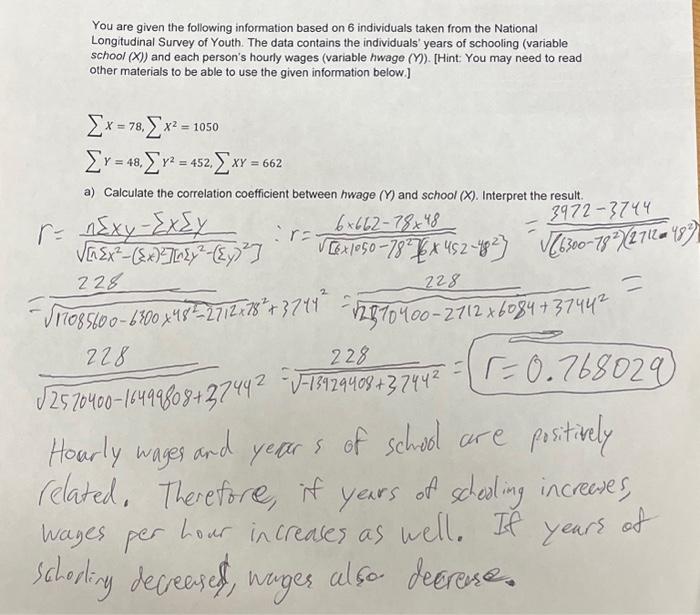 You are given the following information based on 6 individuals taken from the National
Longitudinal Survey of Youth. The data contains the individuals' years of schooling (variable
school (X)) and each person's hourly wages (variable hwage (Y)). [Hint: You may need to read
other materials to be able to use the given information below.]
∑X = 78, ∑X² = 1050
∑Y = 48, ∑Y² = 452, ∑XY = 662
a) Calculate the correlation coefficient between hwage (Y) and school (X). Interpret the result.
r = nΣxy-ΣxΣy / √[nΣx²-(Σx)²][nΣy²-(Σy)²] : r = 6x662-78x48 / √[6x1050-78²][6x452-48²] = 3972-3744 / √(6300-78²)(2712-48²)
= 228 / √17085600-6300x48²-2712x78²+3744² = 228 / √2570400-2712x6084+3744² =
228 / √2570400-16499808+3744² = 228 / √-13929408+3744² = r=0.768029
Hourly wages and years of school are positively
related. Therefore, if years of schooling increases,
wages per hour increases as well. If years of
schooling decreased, wages also decrease.